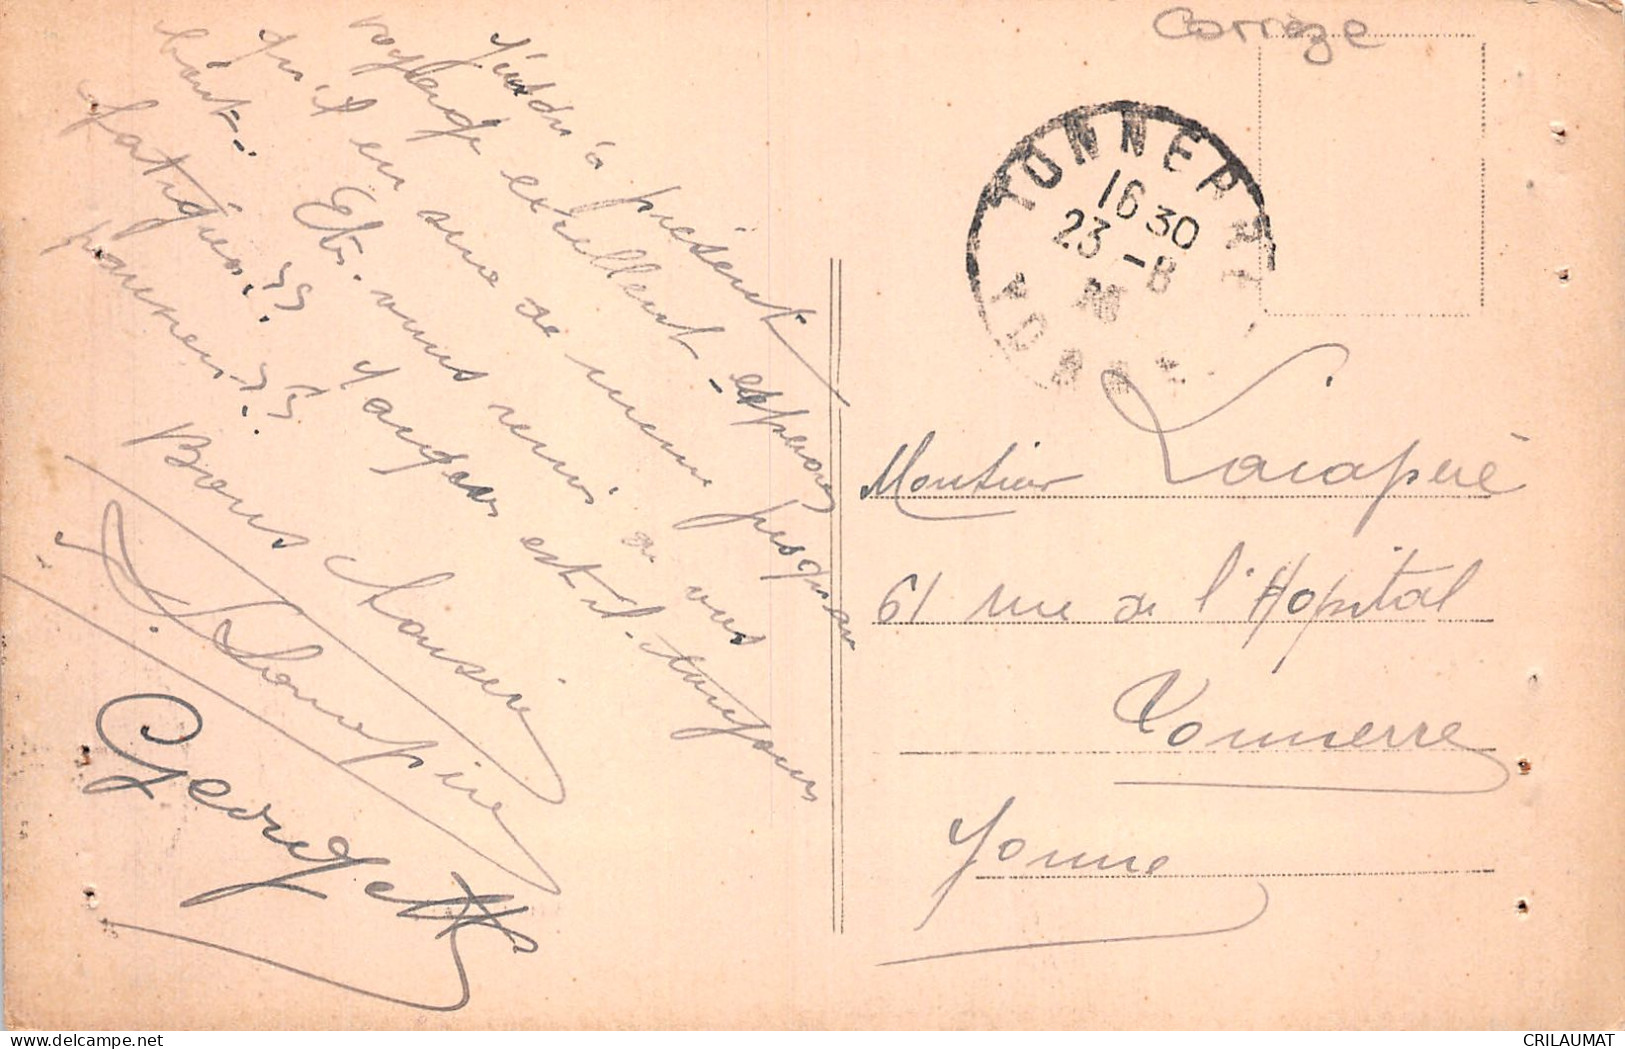 Corrèze
TONNERRE
16 30
23 - 8
YONNE
Jusqu'à présent
voyage excellent espérons
qu'il en sera de même jusqu'au
bout. Et vous remis de vos
fatigues ?? Jacques est-il toujours
pareil ??
Bons baisers
Lacapère
Georgette
Monsieur Lacapère
61 rue de l'Hopital
Tonnerre
Yonne
CRILAUMAT